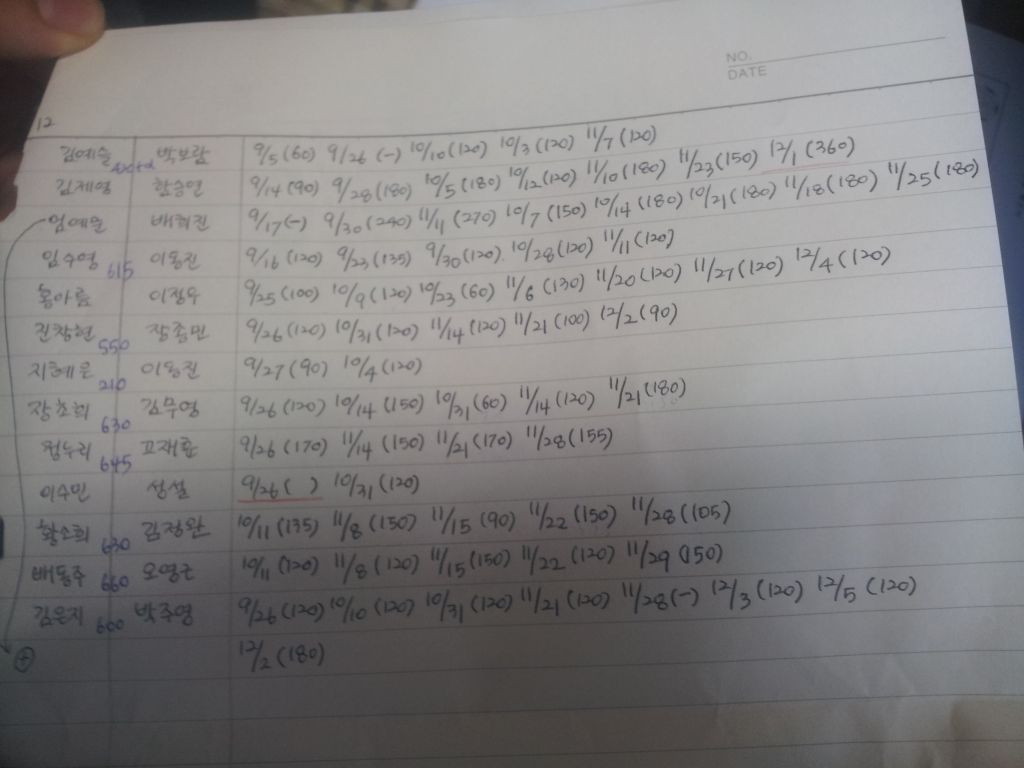 NO.
DATE
12
김예슬 박보람 9/5(60) 9/26 (-) 10/10(120) 10/3(120) 11/7(120)
김제영 함승연 9/14(90) 9/28(180) 10/5(180) 10/12(120) 11/10(180) 11/23(150) 12/1(360)
엄예슬 배휘진 9/17(-) 9/30(240) 11/11(270) 10/7(150) 10/14(180) 10/21(180) 11/18(180) 11/25(180)
임수영 615 이동진 9/16(120) 9/23(135) 9/30(120) 10/28(120) 11/11(120)
홍아름 이정우 9/25(100) 10/9(120) 10/23(60) 11/6(130) 11/20(120) 11/27(120) 12/4(120)
진창현 550 장종민 9/26(120) 10/31(120) 11/14(120) 11/21(100) 12/2(90)
지혜른 210 이동진 9/27(90) 10/4(120)
장초희 630 김무영 9/26(120) 10/14(150) 10/31(60) 11/14(120) 11/21(180)
645 고재륜 9/26(170) 11/14(150) 11/21(170) 11/28(155)
이수민 성설 9/26( ) 10/31(120)
황소희 630 김정완 10/11(135) 11/8(150) 11/15(90) 11/22(150) 11/28(105)
배동주 660 오영근 10/11(120) 11/8(120) 11/15(150) 11/22(120) 11/29(150)
김은지 660 박주영 9/26(120) 10/10(120) 10/31(120) 11/21(120) 11/28(-) 12/3(120) 12/5(120)
⊕ 12/2(180)